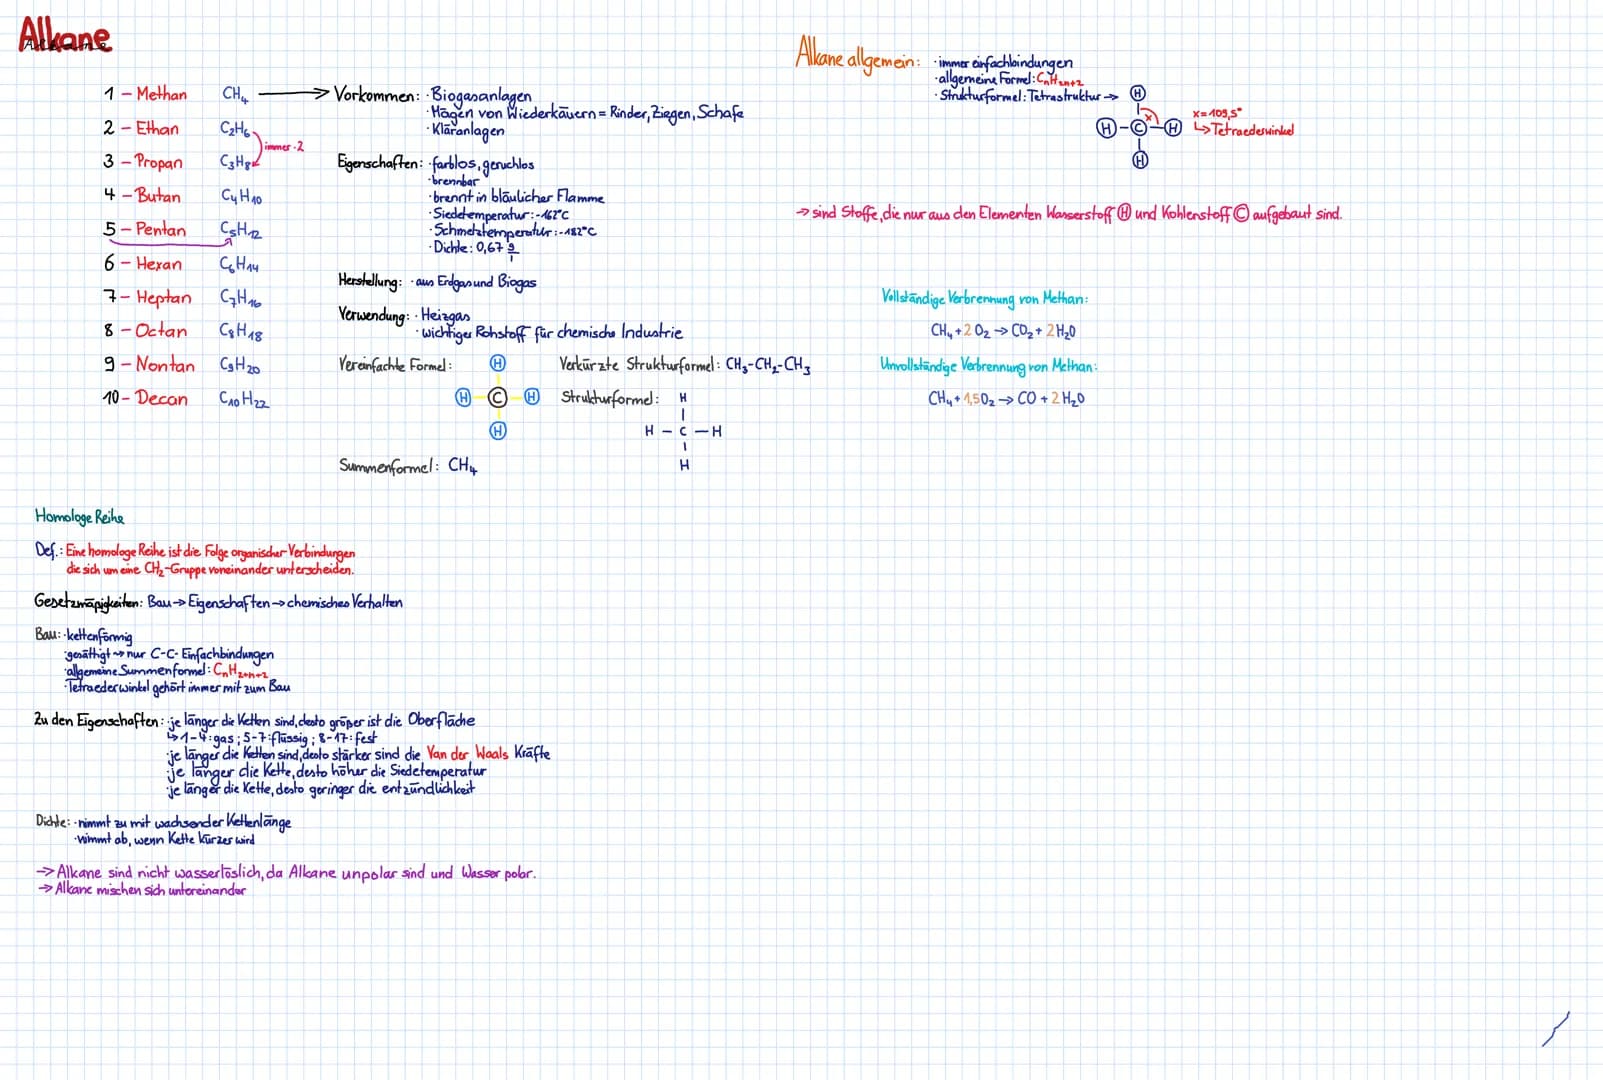 Alkane
Alkane
1 - Methan CH₄ → Vorkommen: · Biogasanlagen
· Mägen von Wiederkäuern = Rinder, Ziegen, Schafe
· Kläranlagen
2 - Ethan C₂H₆
immer ·2
3 - Propan C₃H₈
4 - Butan C₄H₁₀
5 - Pentan C₅H₁₂
6 - Hexan C₆H₁₄
7 - Heptan C₇H₁₆
8 - Octan C₈H₁₈
9 - Nontan C₉H₂₀
10 - Decan C₁₀H₂₂
Eigenschaften: · farblos, geruchlos
· brennbar
· brennt in bläulicher Flamme
· Siedetemperatur: -162°C
· Schmelztemperatur: -182°C
· Dichte: 0,67 g/l
Herstellung: · aus Erdgas und Biogas
Verwendung: · Heizgas
· wichtiger Rohstoff für chemische Industrie
Vereinfachte Formel:
H
H C H
H
Verkürzte Strukturformel: CH₃-CH₂-CH₃
Strukturformel:
H
H - C - H
H
Summenformel: CH₄
Alkane allgemein: · immer einfachbindungen
· allgemeine Formel: CₙH₂ₙ₊₂
· Strukturformel: Tetrastruktur →
H
H - C - H
H
x
x = 109,5°
↳ Tetraederwinkel
→ sind Stoffe, die nur aus den Elementen Wasserstoff H und Kohlenstoff C aufgebaut sind.
Vollständige Verbrennung von Methan:
CH₄ + 2 O₂ → CO₂ + 2 H₂O
Unvollständige Verbrennung von Methan:
CH₄ + 1,5 O₂ → CO + 2 H₂O
Homologe Reihe
Def.: Eine homologe Reihe ist die Folge organischer Verbindungen
die sich um eine CH₂-Gruppe voneinander unterscheiden.
Gesetzmäßigkeiten: Bau → Eigenschaften → chemisches Verhalten
Bau: · kettenförmig
· gesättigt → nur C-C-Einfachbindungen
· allgemeine Summenformel: CₙH₂ₙ₊₂
· Tetraederwinkel gehört immer mit zum Bau
Zu den Eigenschaften: · je länger die Ketten sind, desto größer ist die Oberfläche
↳ 1-4: gas; 5-7: flüssig; 8-17: fest
· je länger die Ketten sind, desto stärker sind die Van der Waals Kräfte
· je länger die Kette, desto höher die Siedetemperatur
· je länger die Kette, desto geringer die entzündlichkeit
Dichte: · nimmt zu mit wachsender Kettenlänge
· nimmt ab, wenn Kette kürzer wird
→ Alkane sind nicht wasserlöslich, da Alkane unpolar sind und Wasser polar.
→ Alkane mischen sich untereinander